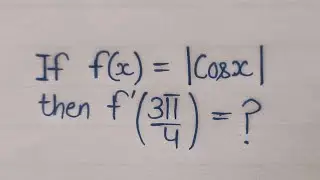 If f(x) = |Cosx|
then f'(3π/4) = ?